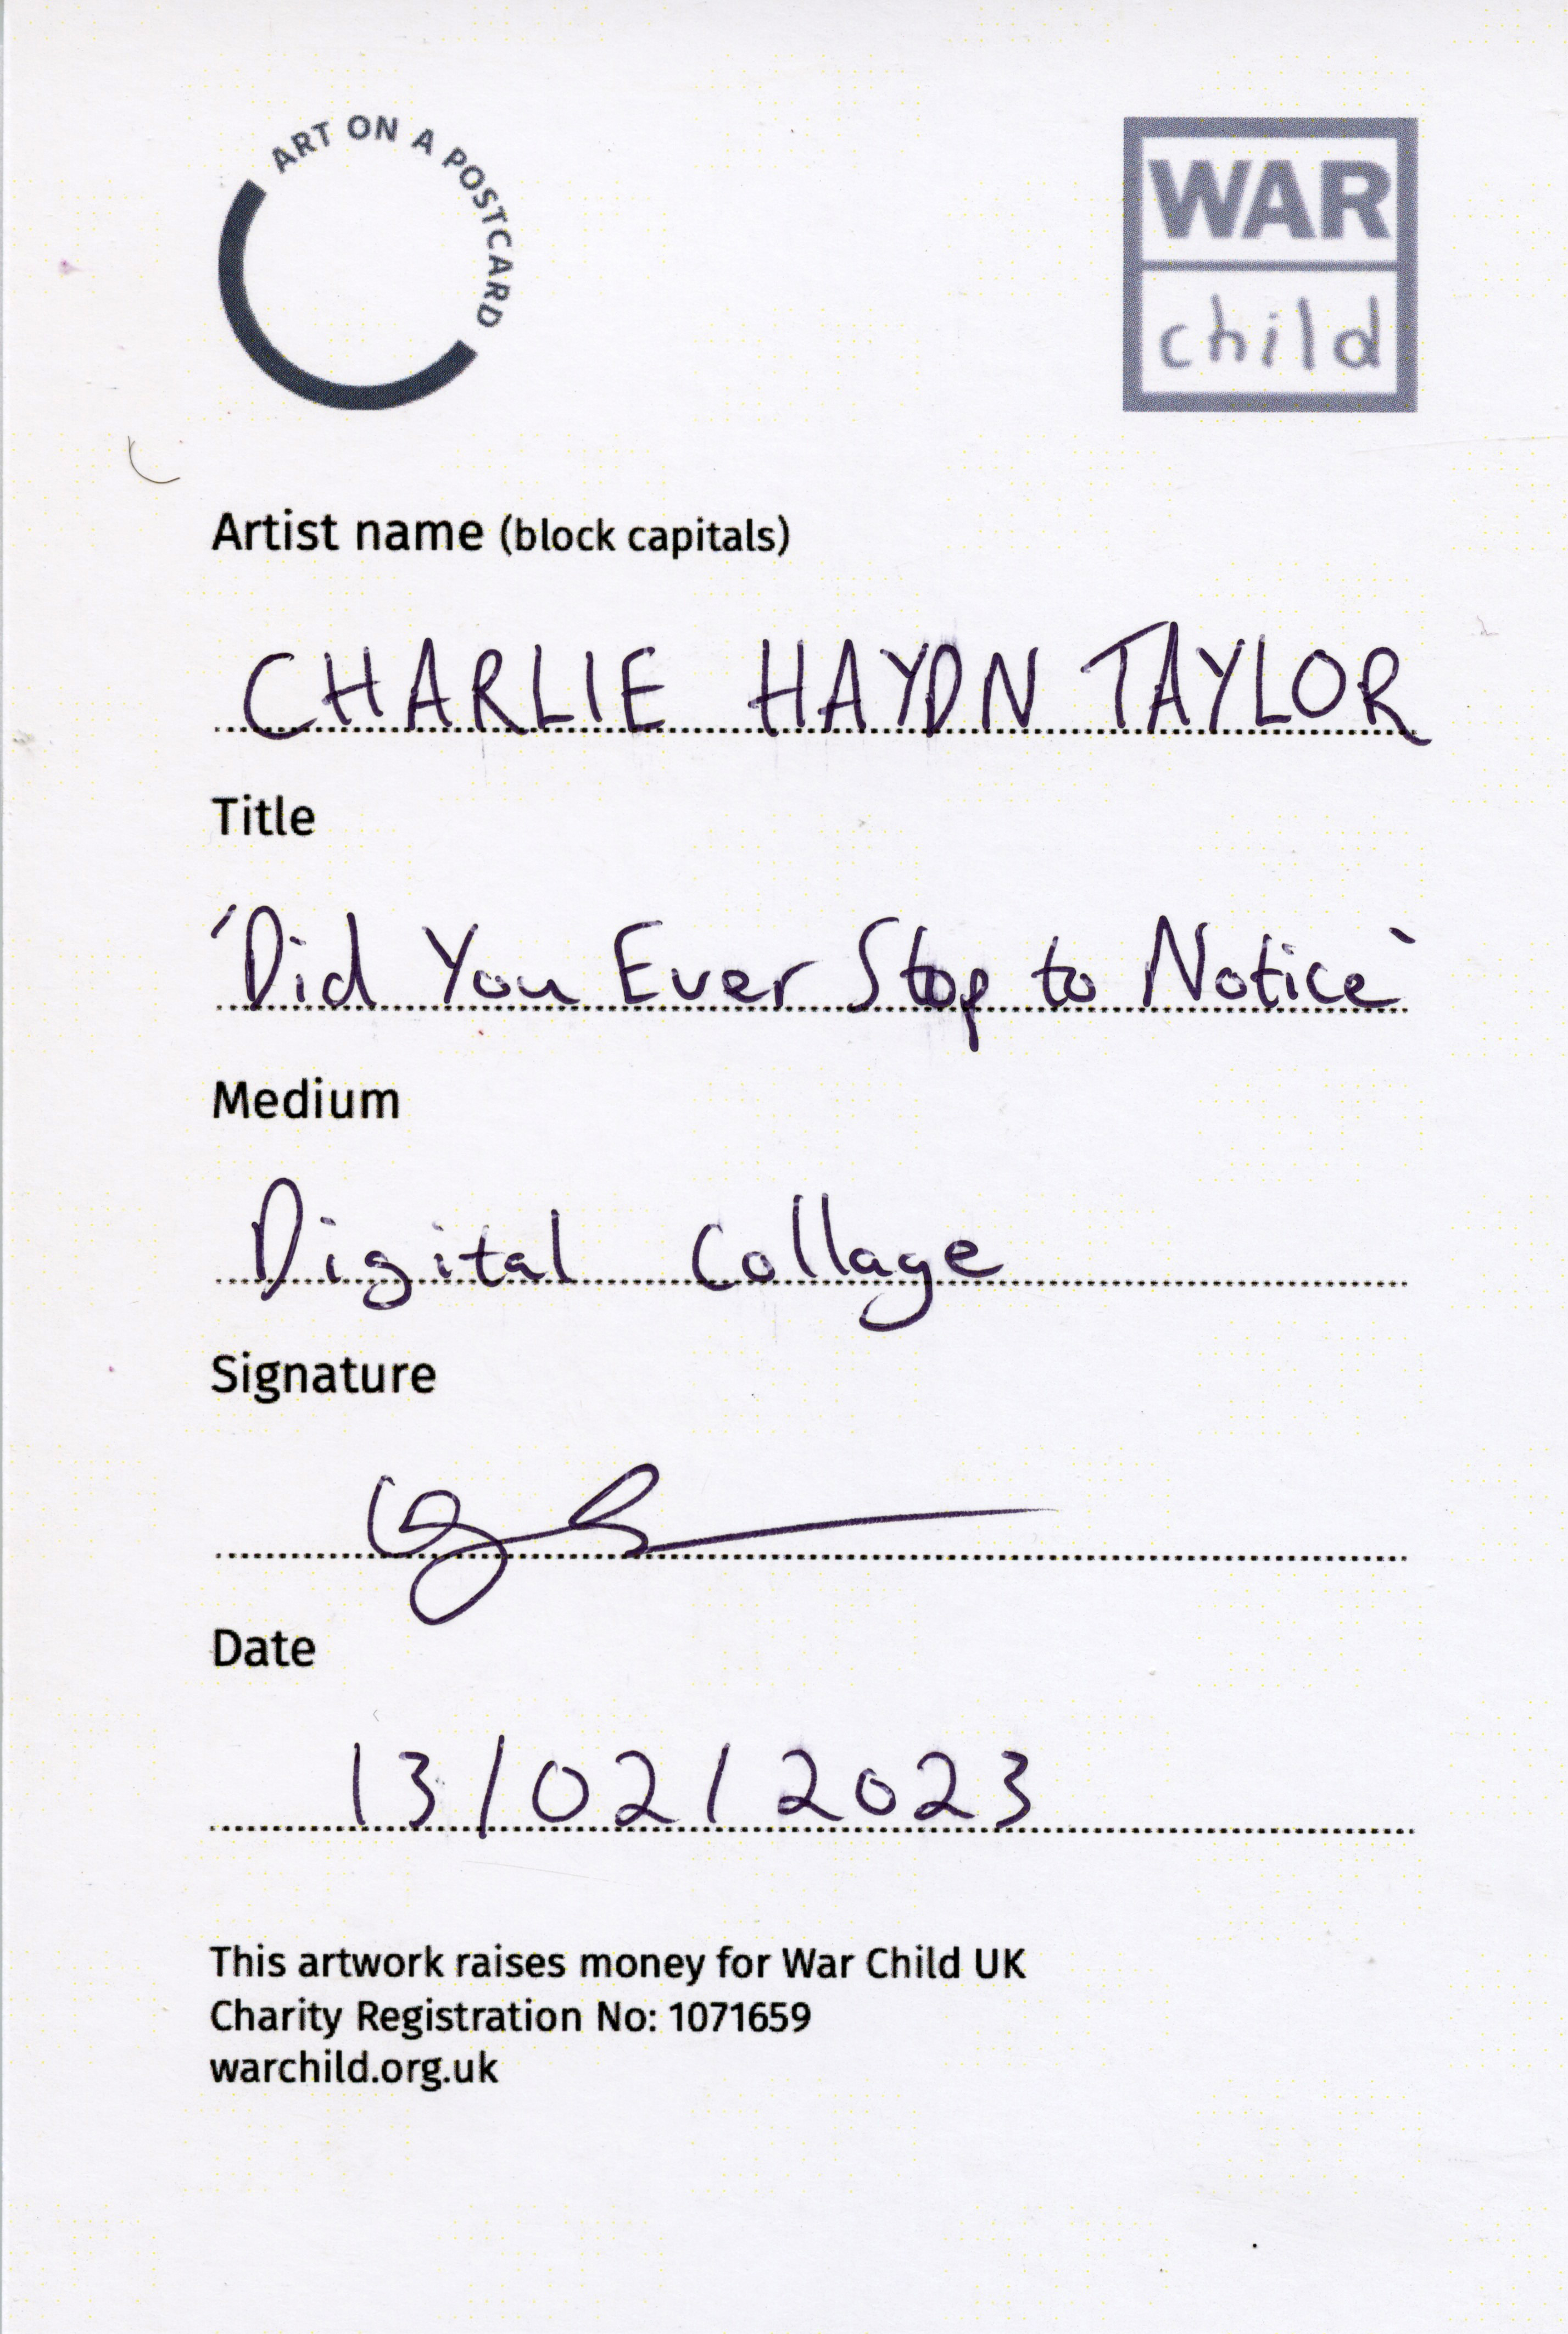 ART ON A POSTCARD
WAR
child
Artist name (block capitals)
CHARLIE HAYDN TAYLOR
Title
'Did You Ever Stop to Notice'
Medium
Digital Collage
Signature
Date
13/02/2023
This artwork raises money for War Child UK
Charity Registration No: 1071659
warchild.org.uk